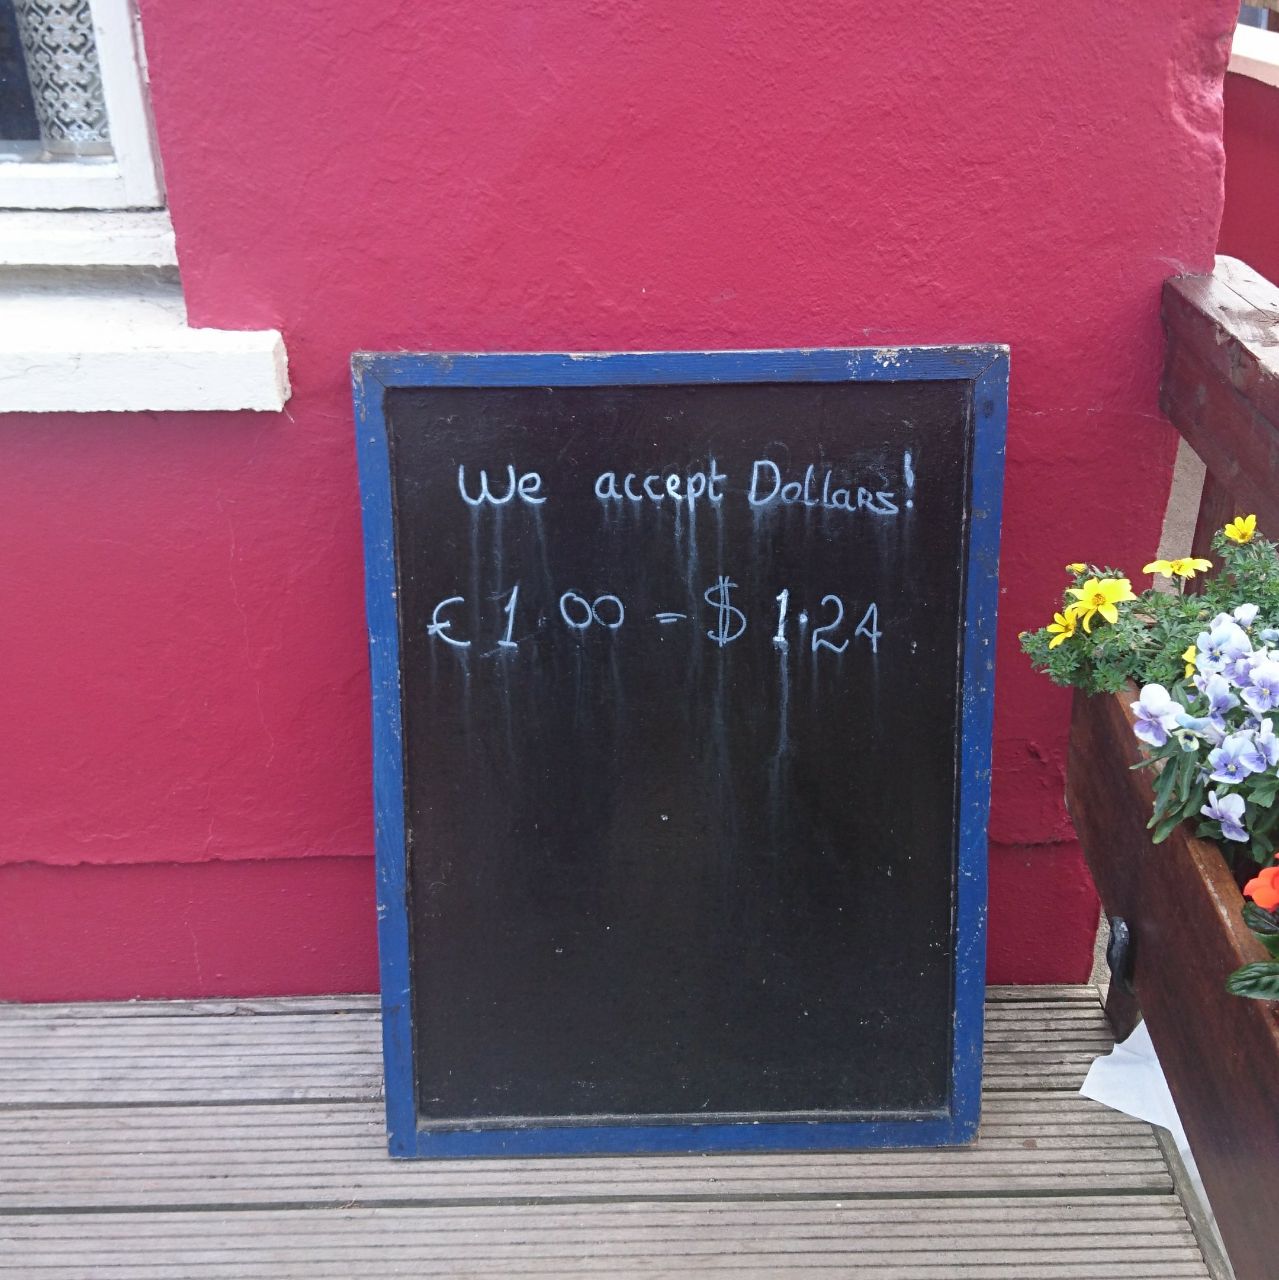 We accept Dollars!
€1.00 = $1.24